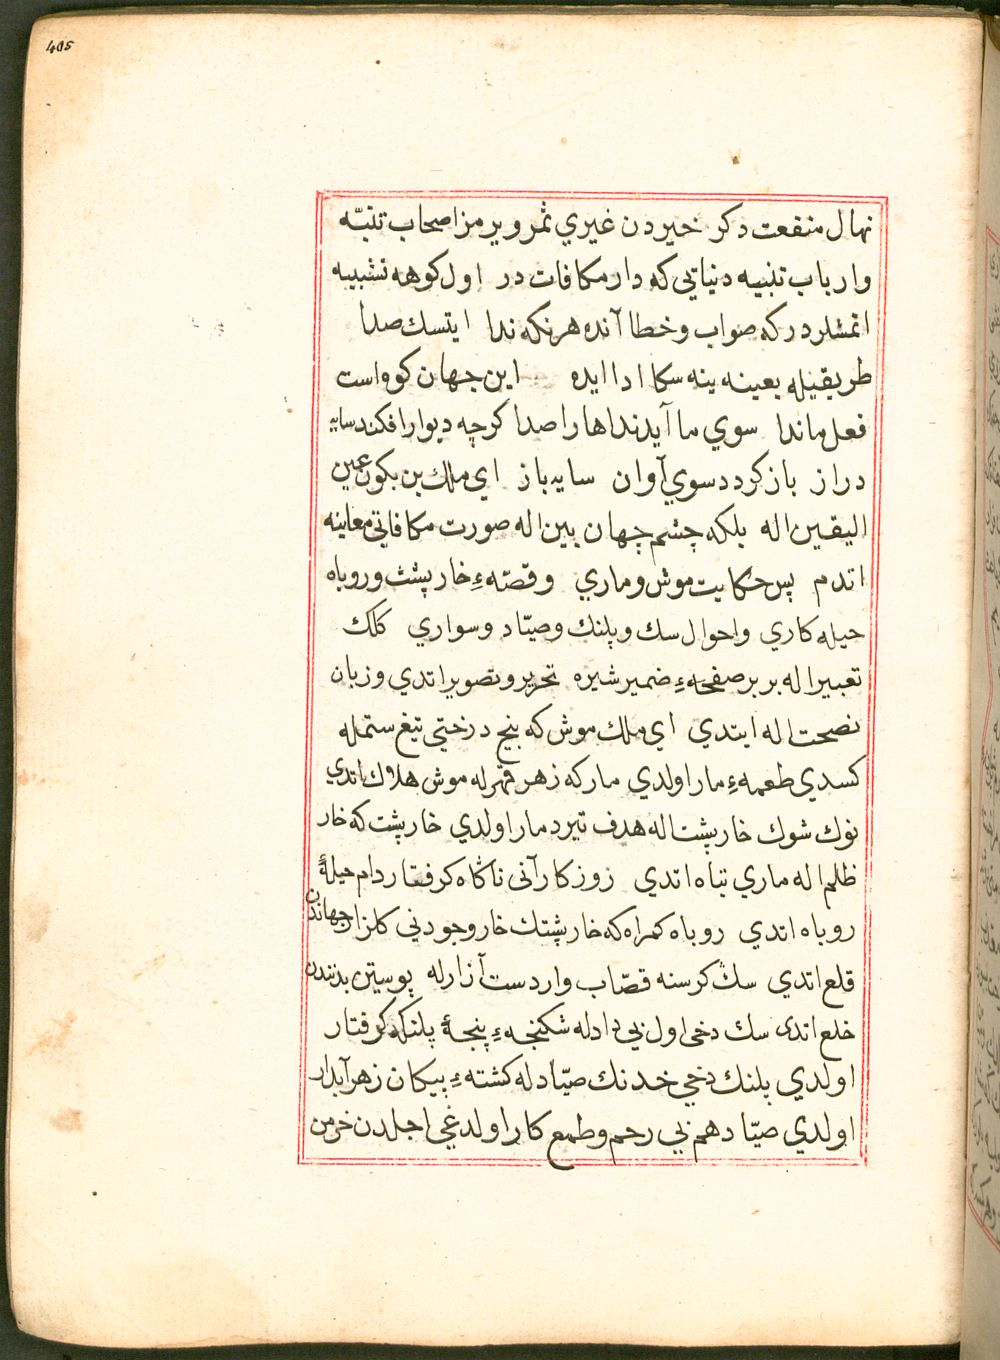 405
نهال منفعت دكر خيردن غيري ثمر ويرمز اصحاب تنبّه
وارباب تنبيه دنيايي كه دار مكافات در اول كوهه تشبيه
اتمشلردر كه صواب وخطا آنده هر نكه ندا ايتسك صدا
طريقيله بعينه ينه سكا ادا ايده اين جهان كوه است
فعل ما ندا سوي ما آيد نداها را صدا كرچه ديوار افكند سايه
دراز باز كردد سوي آوان سايه باز اي ملك بن بكون عين
اليقين اله بلكه چشم جهان بين اله صورت مكافاتي معاينه
اتدم پس حكايت موش وماري وقصّهءِ خارپشث وروباه
حيله كاري واحوال سك وپلنك وصيّاد وسواري كلك
تعبير اله بر بر صفحهءِ ضمير شيره تحرير وتصوير اتدي وزبان
نصحت اله ايتدي اي ملك موش كه بيخ درختي تيغ ستمله
كسدي طعمهءِ مار اولدي مار كه زهر قهرله موش هلاك اتدي
نوك شوك خارپشت اله هدف تير دمار اولدي خارپشت كه خار
ظلم اله ماري تباه اتدي روزكار آنى ناكاه كرفتار دام حيلهٔ
روباه اتدي روباه كمراه كه خارپشتك خار وجودني كلزار جهاندن
قلع اتدي سك كرسنه قصّاب وار دست آزارله پوستين بدنندن
خلع اتدى سك دخى اول بي دادله شكنجهءِ پنجهٔ پلنكه كرفتار
اولدي پلنك دخي خدنك صيّادله كشتهءِ پيكان زهر آبدار
اولدي صيّاد هم بي رحم وطمع كار اولدغي اجلدن خرمن